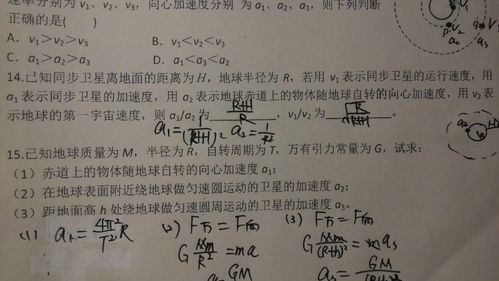 率分别为 v₁、v₂、v₃，向心加速度分别 为 a₁、a₂、a₃，则下列判断
正确的是(　　)
A．v₁＞v₂＞v₃　　B．v₁＜v₂＜v₃
C．a₁＞a₂＞a₃　　D．a₁＜a₃＜a₂
14.已知同步卫星离地面的距离为 H，地球半径为 R，若用 v₁ 表示同步卫星的运行速度，用
a₁ 表示同步卫星的加速度，用 a₂ 表示地球赤道上的物体随地球自转的向心加速度，用 v₂ 表
示地球的第一宇宙速度，则 a₁/a₂ 为 (R+H)/R，v₁/v₂ 为 √(R/(R+H))。
15.已知地球质量为 M，半径为 R，自转周期为 T，万有引力常量为 G，试求：
（1）赤道上的物体随地球自转的向心加速度 a₁；
（2）在地球表面附近绕地球做匀速圆运动的卫星的加速度 a₂；
（3）距地面高 h 处绕地球做匀速圆周运动的卫星的加速度 a₃。
(1) a₁=4π²/T² R
(2) F万=F向
G Mm/R² =ma
GM
(3) F万=F向
G Mm/(R+h)² = a₃
a₃= GM/(R+h)